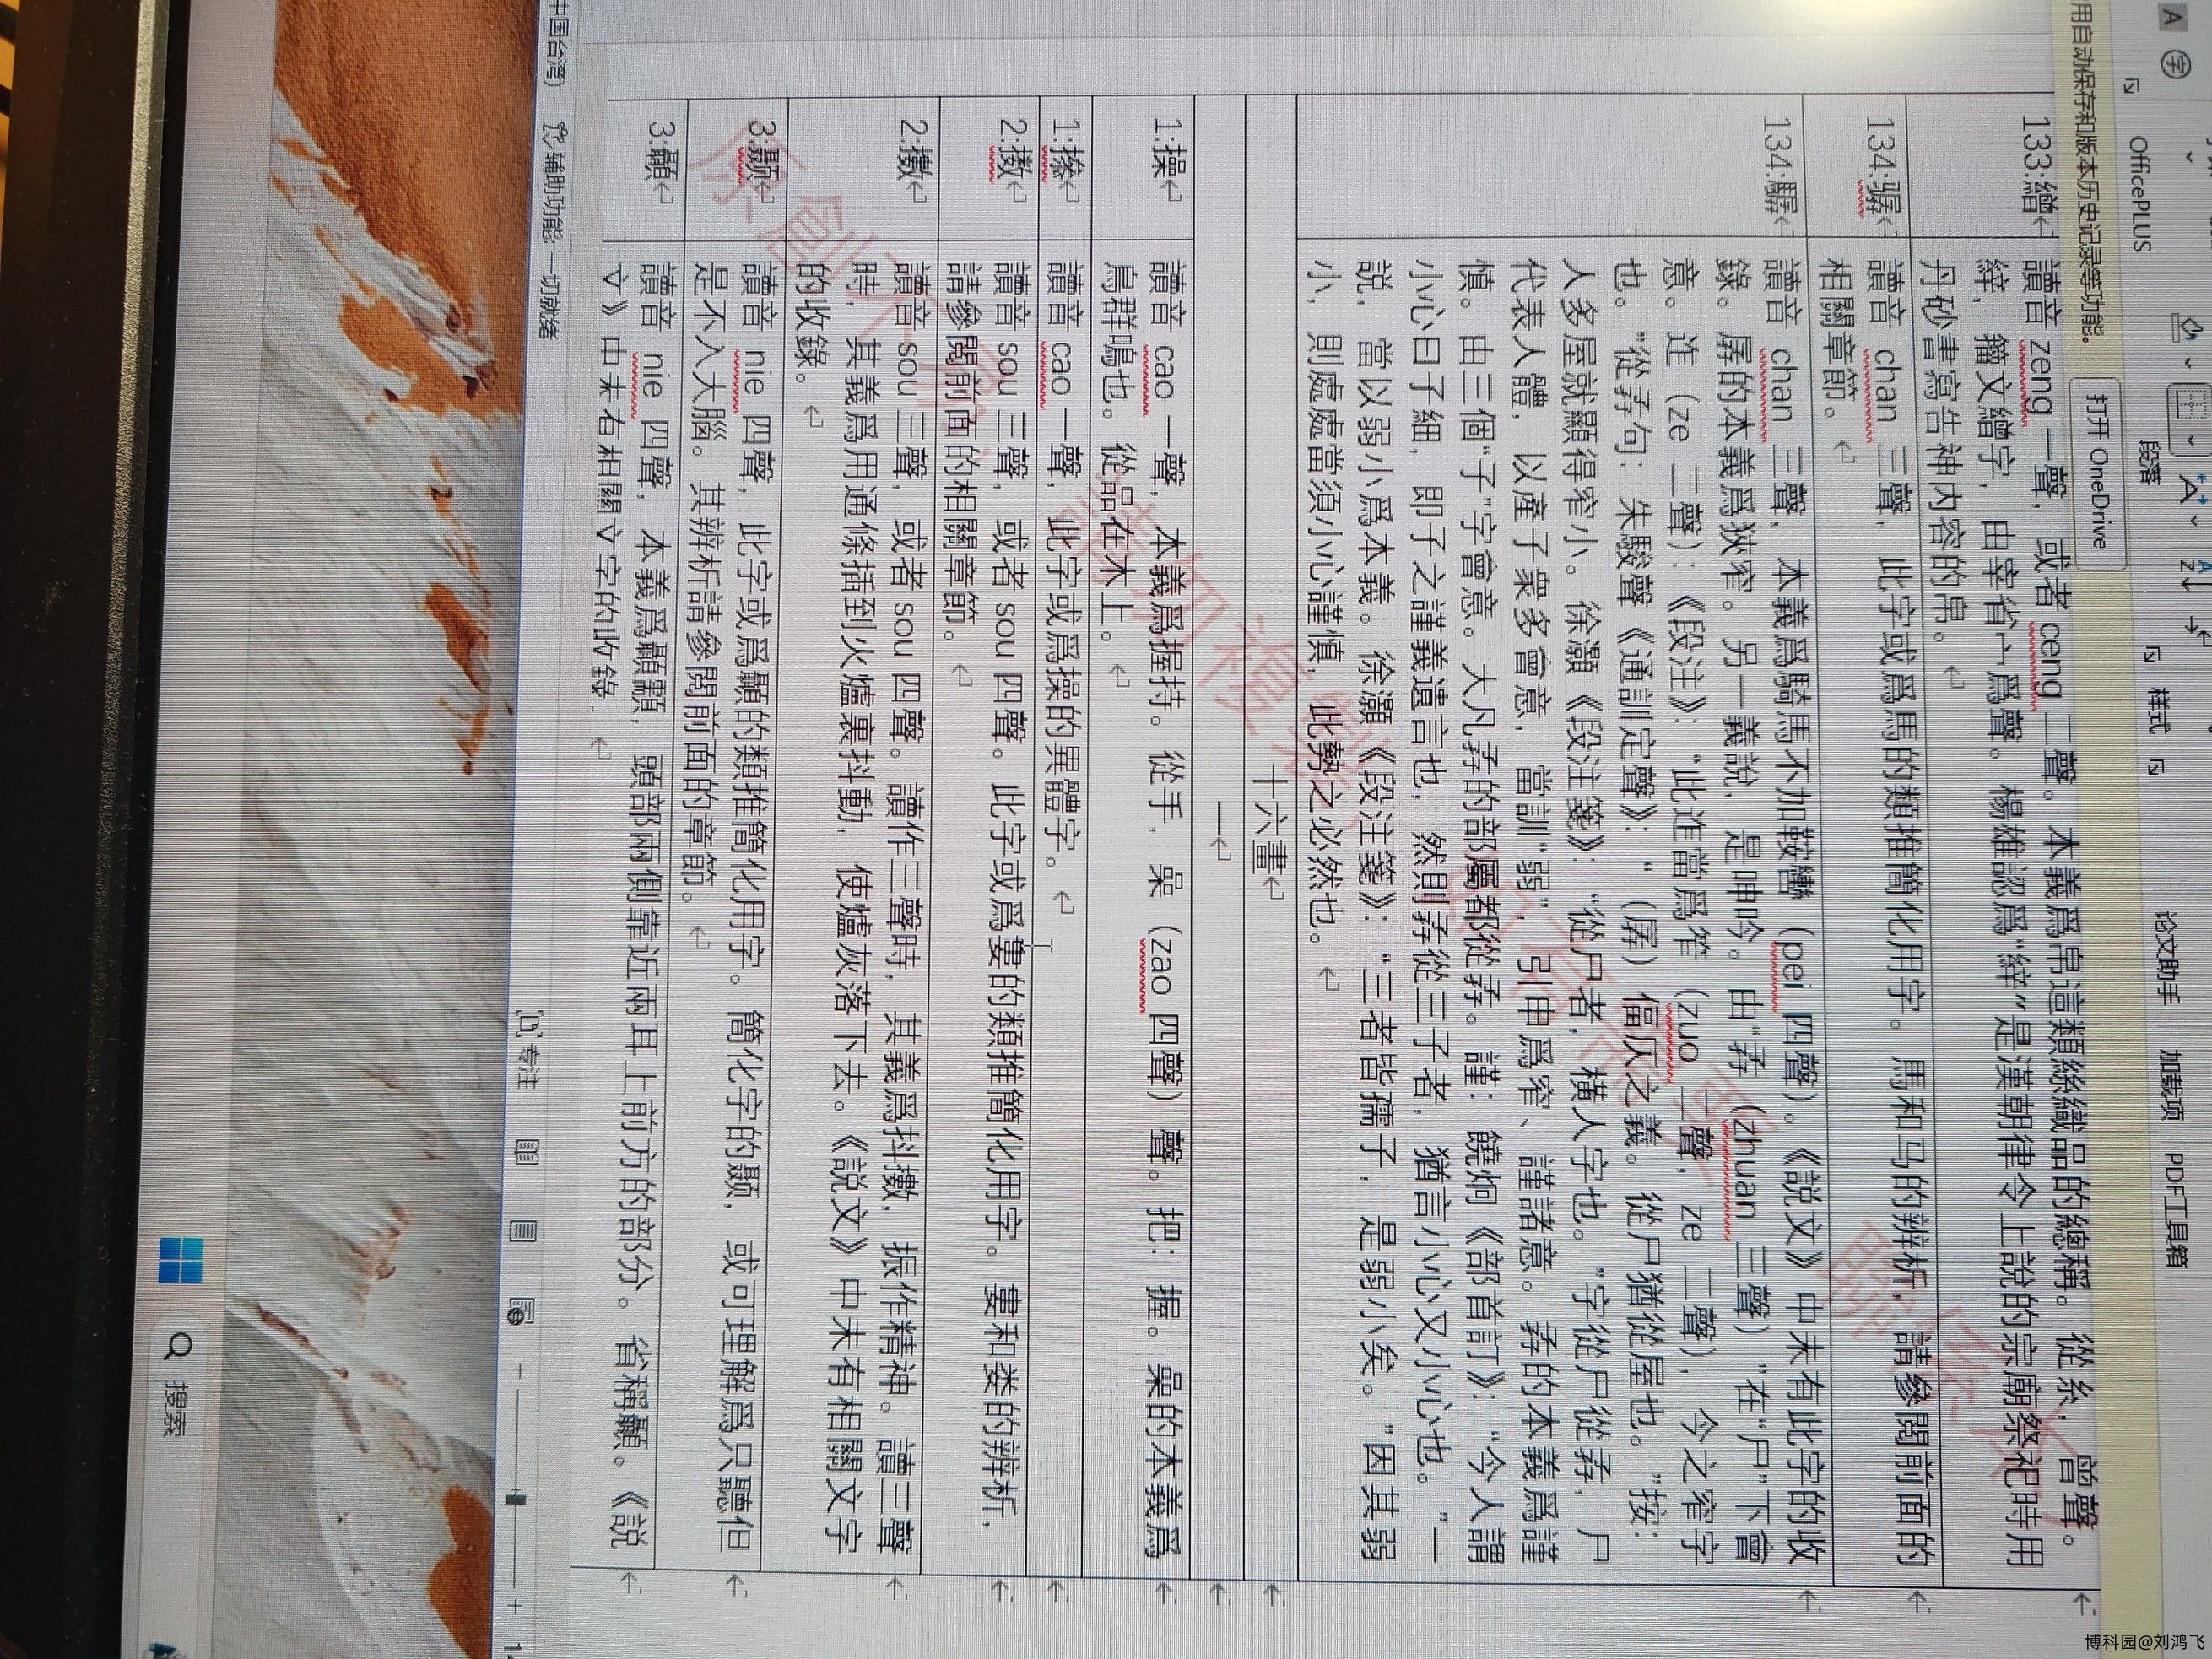 用自动保存和版本历史记录等功能。 打开 OneDrive
OfficePLUS 段落 样式 论文助手 加载项 PDF工具箱
133:繒 讀音 zeng 一聲，或者 ceng 二聲。本義爲帛這類絲織品的總稱。從糸，曾聲。
縡，籀文繒字，由宰省宀爲聲。楊雄認爲“縡”是漢朝律令上說的宗廟祭祀時用
丹砂書寫告神内容的帛。
134:骣 讀音 chan 三聲，此字或爲馬的類推簡化用字。馬和马的辨析，請參閲前面的
相關章節。
134:驏 讀音 chan 三聲，本義爲騎馬不加鞍轡（pei 四聲）。《説文》中未有此字的收
錄。孱的本義爲狹窄。另一義說，是呻吟。由“孨（zhuan 三聲）”在“尸”下會
意。迮（ze 二聲）：《段注》：“此迮當爲笮（zuo 二聲，ze 二聲），今之窄字
也。“從孨句：朱駿聲《通訓定聲》：“（孱）偪仄之義。從尸猶從屋也。”按：
人多屋就顯得窄小。徐灝《段注箋》：“從尸者，橫人字也。“字從尸從孨，尸
代表人體，以產子衆多會意，當訓“弱”，引申爲窄、謹諸意。孨的本義爲謹
慎。由三個“子”字會意。大凡孨的部屬都從孨。謹：饒炯《部首訂》：“今人謂
小心曰子細，即子之謹義遺言也，然則孨從三子者，猶言小心又小心也。”一
説，當以弱小爲本義。徐灝《段注箋》：“三者皆孺子，是弱小矣。”因其弱
小，則處處當須小心謹慎，此勢之必然也。
十六畫
一
1:操 讀音 cao 一聲，本義爲握持。從手，喿（zao 四聲）聲。把：握。喿的本義爲
鳥群鳴也。從品在木上。
1:撡 讀音 cao 一聲，此字或爲操的異體字。
2:擞 讀音 sou 三聲，或者 sou 四聲。此字或爲婁的類推簡化用字。婁和娄的辨析，
請參閲前面的相關章節。
2:擻 讀音 sou 三聲，或者 sou 四聲。讀作三聲時，其義爲抖擻，振作精神。讀三聲
時，其義爲用通條插到火爐裏抖動，使爐灰落下去。《説文》中未有相關文字
的收錄。
3:颞 讀音 nie 四聲，此字或爲顳的類推簡化用字。簡化字的颞，或可理解爲只聽但
是不入大腦。其辨析請參閲前面的章節。
3:顳 讀音 nie 四聲，本義爲顳顬，頭部兩側靠近兩耳上前方的部分。省稱顳。《説
文》中未有相關文字的收錄.
原創不易，請勿複製
中国台湾) 辅助功能: 一切就绪 专注
搜索
博科园@刘鸿飞